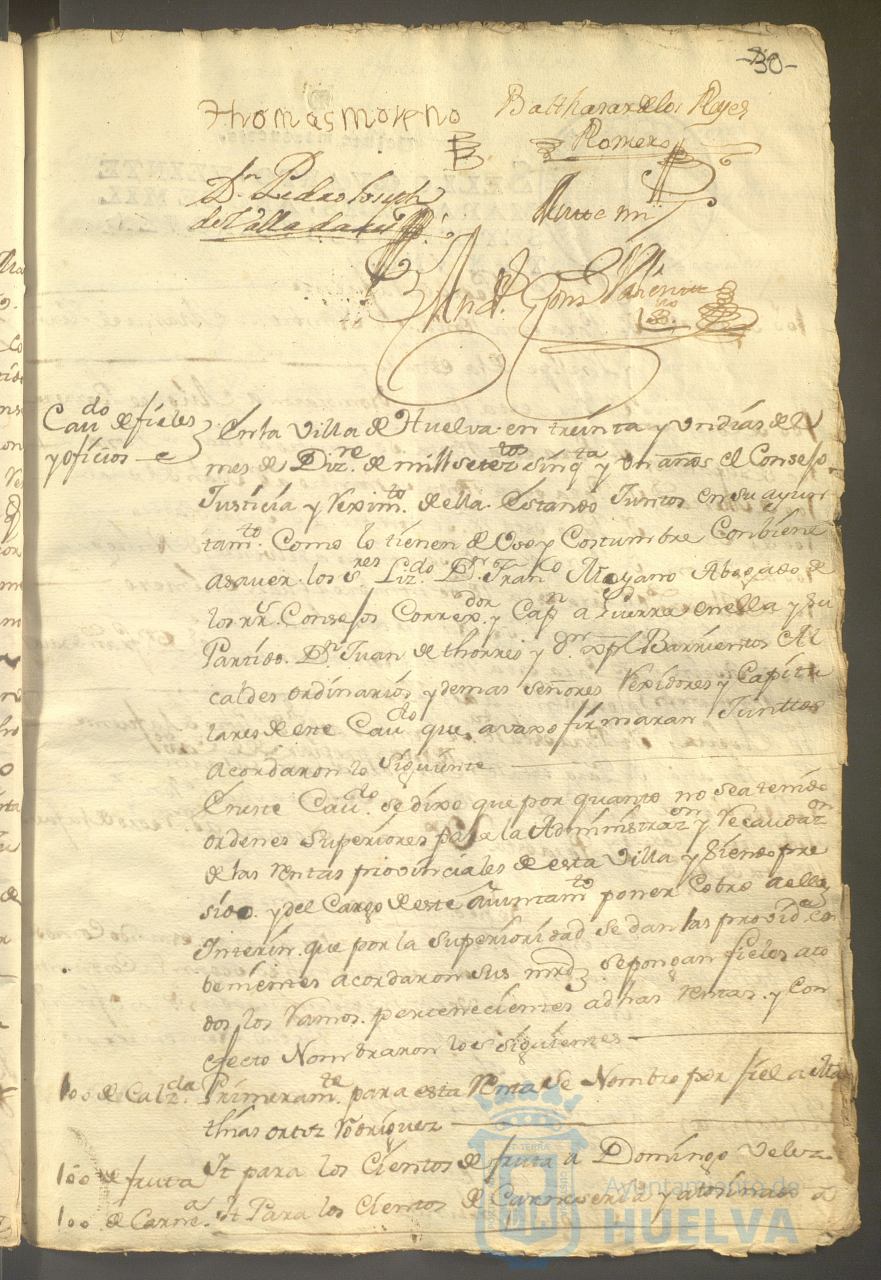 -30-
thomas moreno Balthasar de los Reyes
Romero
Dn Pedro Joseph
de Valladares
Ante mi
Cavdo de fieles
y oficios
En la Villa de Huelva en treinta y un dias del
mes de Dizre de mill setectos sinqta y un años el Consejo
Justicia y Reximto de ella Estando Juntos en su ayun
tamto Como lo tienen de Vso y Costumbre Conbiene
asaver los Sres Lizdo Dn Franco Moyano Abogado de
los rrs Consejos Correxdor y Capn a Guerra en ella y su
Partido Dn Juan de thorres y Dn xpl Barrientos Al
caldes ordinarios y demas Señores Rexidores y Capitu
lares de este Cavdo que avaxo firmaran Junttos
acordaron lo Siguiente
En este Cavdo se dixo que por quanto no se a tenido
ordenes Superiores para la Administrazon y Recaudazon
de las rentas provinciales de esta Villa y siendo pre
siso y del Cargo de este Aiuntamto poner Cobro a ellas
Interin que por la Superioridad se dan las providas con
benientes acordaron sus mrds se pongan fieles a to
dos los Ramos pertenecientes a dhas Rentas y Con
efecto Nombraron los Siguientes
100 de Calzda Primeramte para esta Renta se Nombro por fiel a Ma
thias ortiz Rodriguez
100 de fruta It para los Cientos de fruta a Domingo Velez
100 de Carne It Para los Cientos de Carneseria y a
Ayuntamiento de
HUELVA